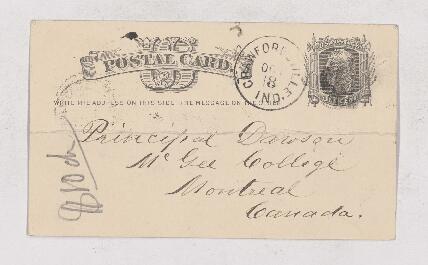 POSTAL CARD
WRITE THE ADDRESS ON THIS SIDE - THE MESSAGE ON THE OTHER
CRAWFORDSVILLE IND.
18
Principal Dawson
McGee College
Montreal
Canada.